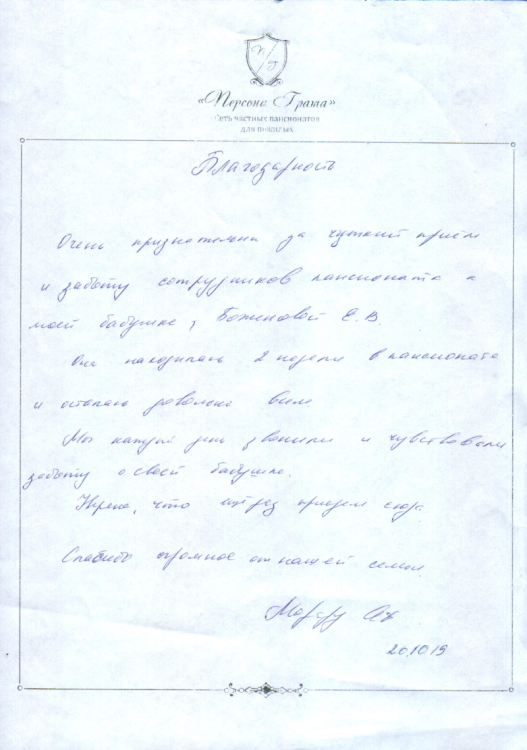 П/Г
«Персона Грата»
Сеть частных пансионатов
для пожилых
Благодарность
Очень признательны за чуткий приём
и заботу сотрудников пансионата к
моей бабушке, Е.В.
Она находилась 2 недели в пансионате
и осталась довольна всем
Мы каждый день звонили и чувствовали
заботу о своей бабушке.
Уверена, что ещё раз приедем сюда
Спасибо огромное от нашей семьи
20.10.19